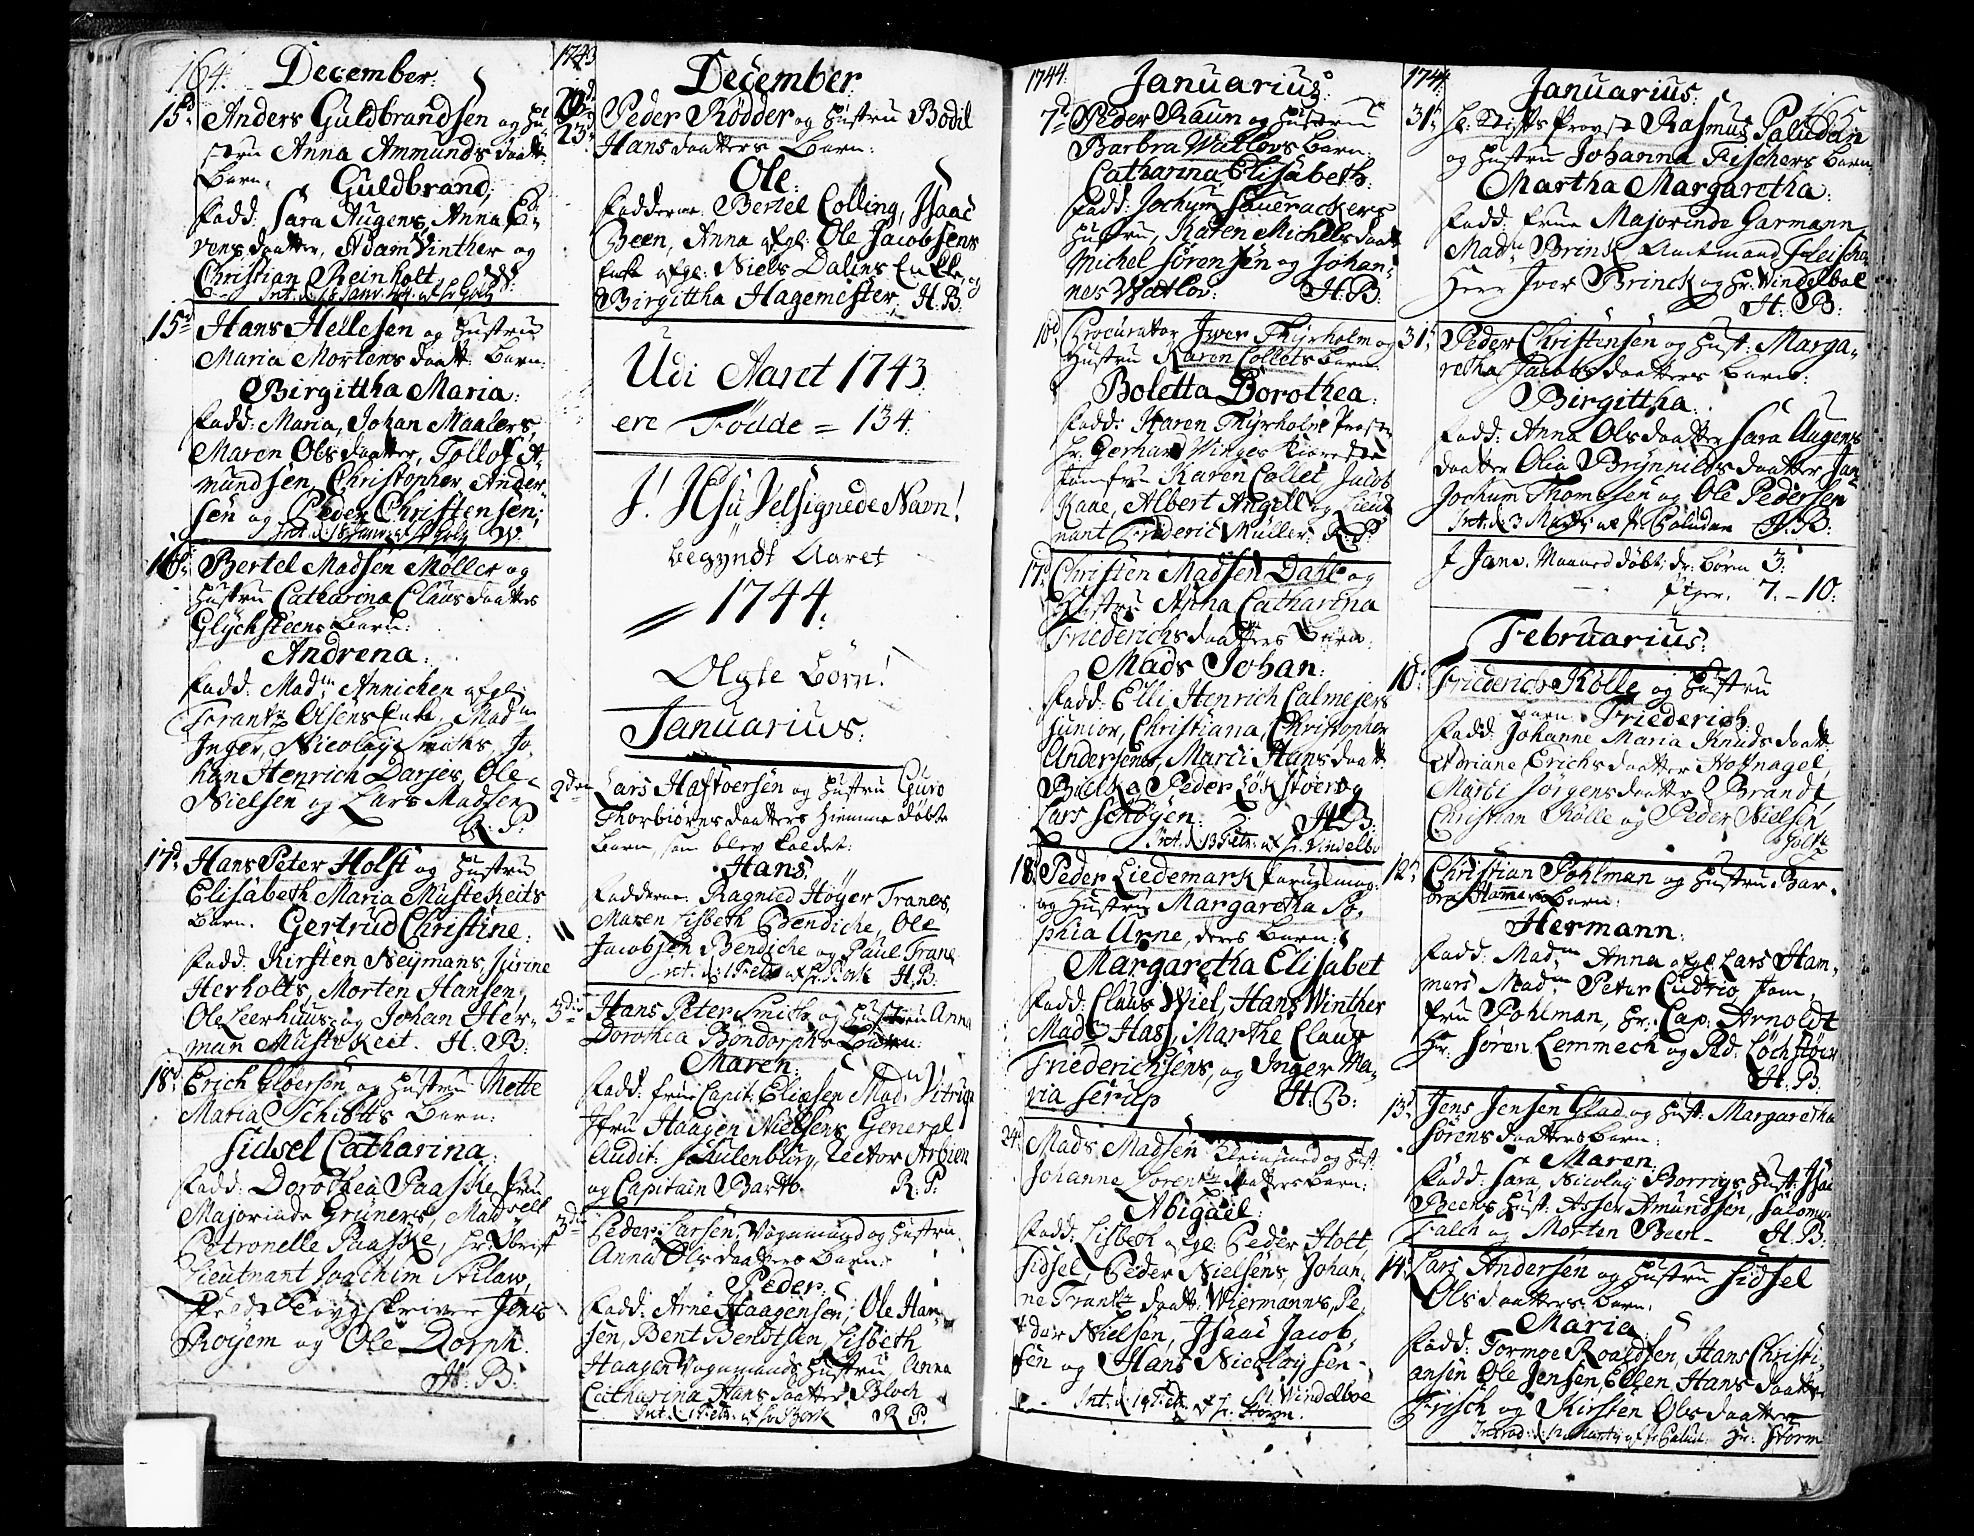 164.
December.
15d Anders Guldbrandsen og Hu-
stru Anna Ammunds daatt:
Barn.
Guldbrand;
Fadd: Sara Augens, Anna Ei-
vens daatter, Adam Vinther og
Christian Reinholt,
Int. d. 18 Janr. 44. af hr Goltz
15d Hans Hellesen og Hustru
Maria Mortens daatt. Barn.
Birgittha Maria:
Fadd: Maria, Johan Maalers,
Maren Ols daatter, Tollof A-
mundsen, Christopher Ander-
sen og Peder Christensen;
Int. d. 18 Janr. af hr Goltz W.
16d Bertel Madsen Møller og
Hustru Catharina Claus daatters
Glychsteens Barn:
Andrena.
Fadd: Madm Annichen afgl:
Frantz Olsens Enke, Madm
Inger, Nicolay Smiths, Jo-
han Henrich Darjes, Ole
Nielsen og Lars Madsen
R. P.
17d Hans Peter Holst og Hustru
Elisabeth Maria Mustekeits
Barn. Gertrud Christine:
Fadd: Kirsten Neymans, Jurine
Herholts, Morten Hansen,
Ole Leerhuus og Johan Her-
man Mustekeit. H. B.
18d Erich Gløersen og Hustru Mette
Maria Schiøtts Barn:
Sidsel Catharina:
Fadd: Dorothea Paasske, Fru
Majorinde Gruners, Madsell
Petronelle Paasske, Hr: Obrist
Lieutnant Joachim
Skrivere Jens
Skoyem og Ole Dorph.
H. B:
1743
December
23d Peder Rødder og Hustru Bodil
Hans daatters Barn:
Ole:
Fadderne: Bertel Colling, Isaac
Been, Anna afgl: Ole Jacobsens
Enke afgl: Niels Dalins Enkke, og
Birgittha Hagemester, H. B:
Udi Aaret 1743
ere Fødde = 134.
J! JEsu Velsignede Navn!
begyndt Aaret
1744.
Ægte Børn!
Januarius.
2den Lars Haftversen og Hustru Guro
Thorbiørns daatters hiemme døbte
Barn, som blev kaldet:
Hans.
Fadderne: Ragnild Høyer Tranes,
Maren Lisbeth Bendiche, Ole
Jacobsen Bendiche og Paul Trane
Int. d. 1 Febr. af hr. Bork H. B:
3die Hans Peter Smith og Hustru Anna
Dorothea Bøndorphs Barn:
Maren:
Fadd: Frue Capit: Eliesen Mad: Vitrup
Jfru Haagen Nielsens General
Audit: Schulenburg, Rector Arbien
og Capitain Barth. R. P:
3die Peder Larsen, Vognmand og Hustru
Anna Ols daatters Barn:
Peder:
Fadd: Arne Haagensen, Ole Han-
sen, Bent Bendtsen, Lisbeth
Haagen Vognmands Hustru Anna
Catharina Hans daatter Bloch
Int. d. 1 Febr. af hr Bork R P:
1744.
Januarius:
7d Peder Raun og Hustrue
Barbra Watlovs Barn
Catharina Elisabeth:
Fadd: Jochum Sauerackers
Hustru, Karen Michels daatt
Michel Sørensen og Johan-
nes Watlov: H. B:
10d Procurator Iver Thyrholm og
Hustru Karen Collets Barn.
Boletta Dorothea:
Fadd: Karen Thyrholm
Hr. Gerhard Winges Kiereste
Jomfru Karen Collet Jacob
Kaae, Albert Angell og Lieut
nant Friederic Müller: R. P:
17d Christen Madsen Dahl og
Hustru Anna Catharina
Friederichs daatters Barn.
Mads Johan:
Fadd: Elli, Henrich Calmejers
junior, Christiana, Christopher
Andersens, Marci Hans daatt:
Bilck og Peder Løkstøer og
Lars Schøyen: H B:
Int. d. 13 Febr. af hr. Vindelbo
18d Peder Liedemark Paruqemag:
og Hustru Margaretha So-
phia Arne, deres Barn:
Margaretha Elisabet
Fadd: Claus Wiel, Hans Winther
Madm Hass, Marthe Claus
Friederichsens, og Inger Ma-
ria Serup H. B:
24d Mads Madsen Kleinsmed og Hust
Johanne Lorentz daatters Barn:
Abigael:
Fadd: Lisbeth afgl: Peder Holt,
Sidsel, Peder Nielsens, Johan-
ne Frantz daatt: Wiermanns, Pe-
der Nielsen, Isaac Jacob-
sen og Hans Nicolaysen.
Int. d. 19 Febr. af hr. St. Windelboe
hr. Storm.
1744.
165
Januarius:
31d Hr: Stifts Provst Rasmus Paludan
og Hustru Johanna Fischers Barn
Martha Margaretha:
Fadd: Frue Majorinde Garmann
Madm Brink Amtmand Fleischer
Herr Iver Brinck og Hr: Windelboe
H. B:
31d Peder Christensen og Hust: Marga-
retha Jacobs daatters Barn:
Birgittha:
Fadd: Anna Ols daatter Sara Augens
daatter Olia Brynnilds daatter Jan
Jochum Thomesen og Ole Pedersen
Int. d. 3 Martj af hr. Paludan H. B:
I Janr. Maaned døbt: dr: Børn 3.
piger. 7. - 10:
Februarius:
10d Friederich Kølle og Hustru
Barn. Friederich
Fadd: Johanne Maria Knuds daatt:
Adriane Erichs daatter Hofnagel,
Marci Jørgens daatter Brandt,
Christian Kølle og Peder Nielsen
Goltz
12d Christian Pohlman og Hustru Bar-
bra Hammers Barn:
Hermann:
Fadd: Madm Anna afgl: Lars Ham-
mers Madm Peter Cudrio Jom-
fru Pohlman, Hr: Cap: Arnoldt
Hr: Søren Lemmech og Pd. Løchstøer
H. B:
13d Jens Jensen Glad og Hust: Margaretha
Sørens daatters Barn:
Maren:
Fadd: Sara, Nicolay Borrigs Hust: Isac
Beens Hust: Asser Amundsen, Salomon
Falch og Morten Been- H. B:
14d Lars Andersen og Hustru Sidsel
Ols daatters Barn.
Maria:
Fadd: Tormoe Roaldsen, Hans Christi-
ansen Ole Jensen, Ellen Hans daatter
Frisch og Kirsten Ols daatter
Introd: d: 12 Martij af hr Palud: Hr: Storm